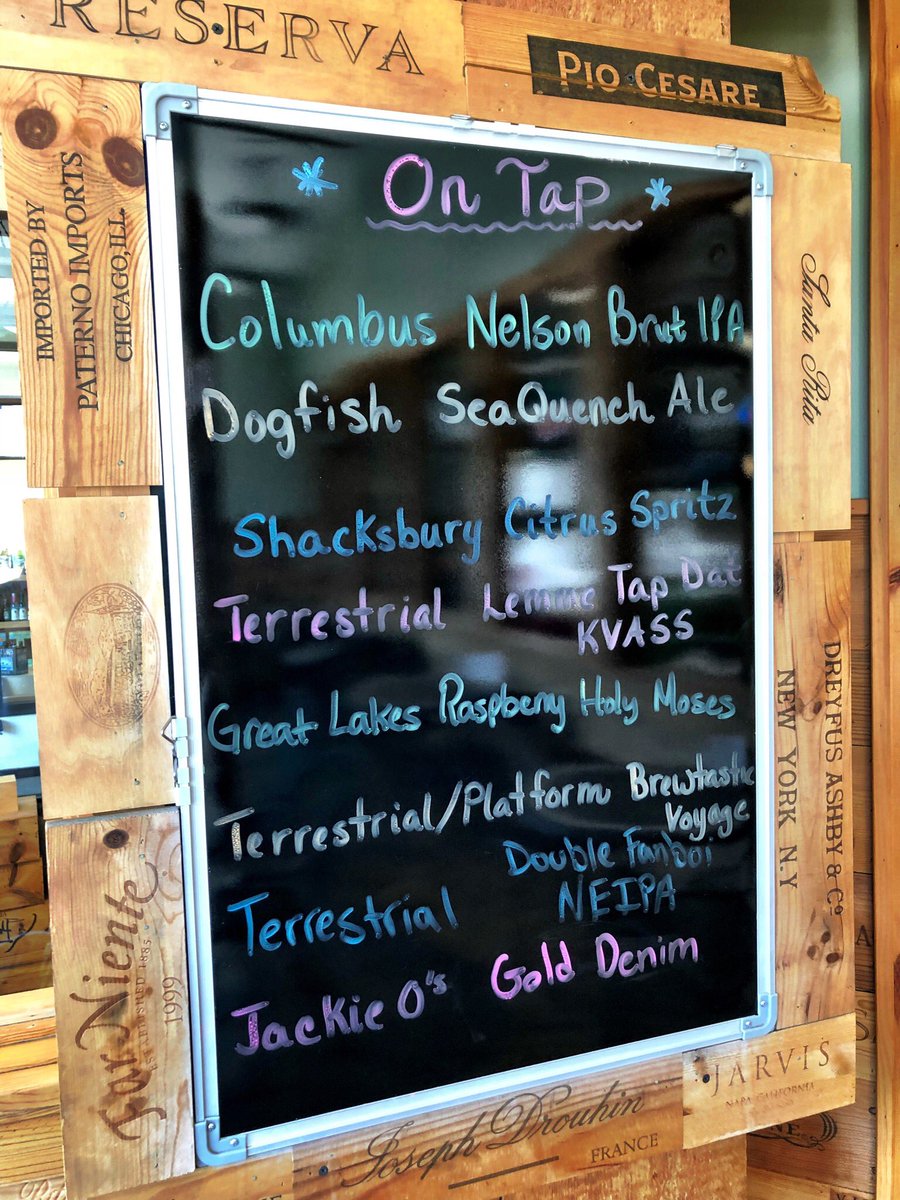 RESERVA
PIO CESARE
IMPORTED BY
PATERNO IMPORTS
CHICAGO, ILL.
* On Tap *
Columbus Nelson Brut IPA
Dogfish SeaQuench Ale
Shacksbury Citrus Spritz
Terrestrial Lemme Tap Dat
KVASS
Great Lakes Raspberry Holy Moses
Terrestrial/Platform Brewtastic
Voyage
Double Fanboi
Terrestrial NEIPA
Jackie O's Gold Denim
Santa Rita
DREYFUS ASHBY & Co
NEW YORK N.Y
Far Niente
ESTABLISHED 1885
1999
JARVIS
NAPA, CALIFORNIA
Joseph Drouhin
FRANCE